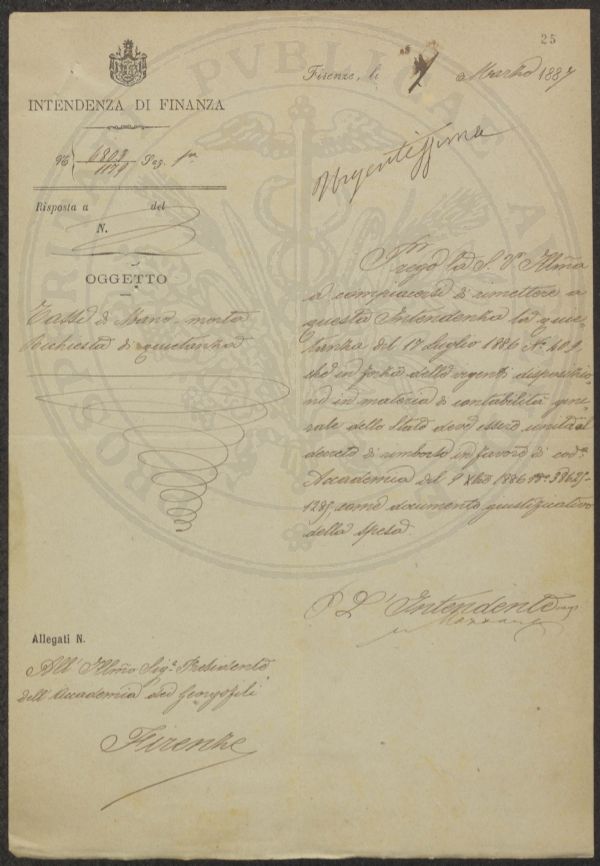 25
Firenze, li 7 Marzo 1887
INTENDENZA DI FINANZA
N. 6803 / 1179 Sez. 1ª
Urgentissima
Risposta a del
N.
OGGETTO
Tassa di Mano-morta
Richiesta di quietanza
Prego la S. Vª Illma
a compiacersi di rimettere a
questa Intendenza la quie-
tanza del 17 Luglio 1886 Nº 409
che in forza delle vigenti disposizio-
ni in materia di contabilità gene-
rale dello Stato deve essere unita al
decreto di rimborso in favore di codª
Accademia del 9 Xbre 1886 Nº 38625-
1285, come documento giustificativo
della spesa.
P L'Intendente
Allegati N.
All' Illmo Sigr Presidente
dell'Accademia dei Georgofili
Firenze